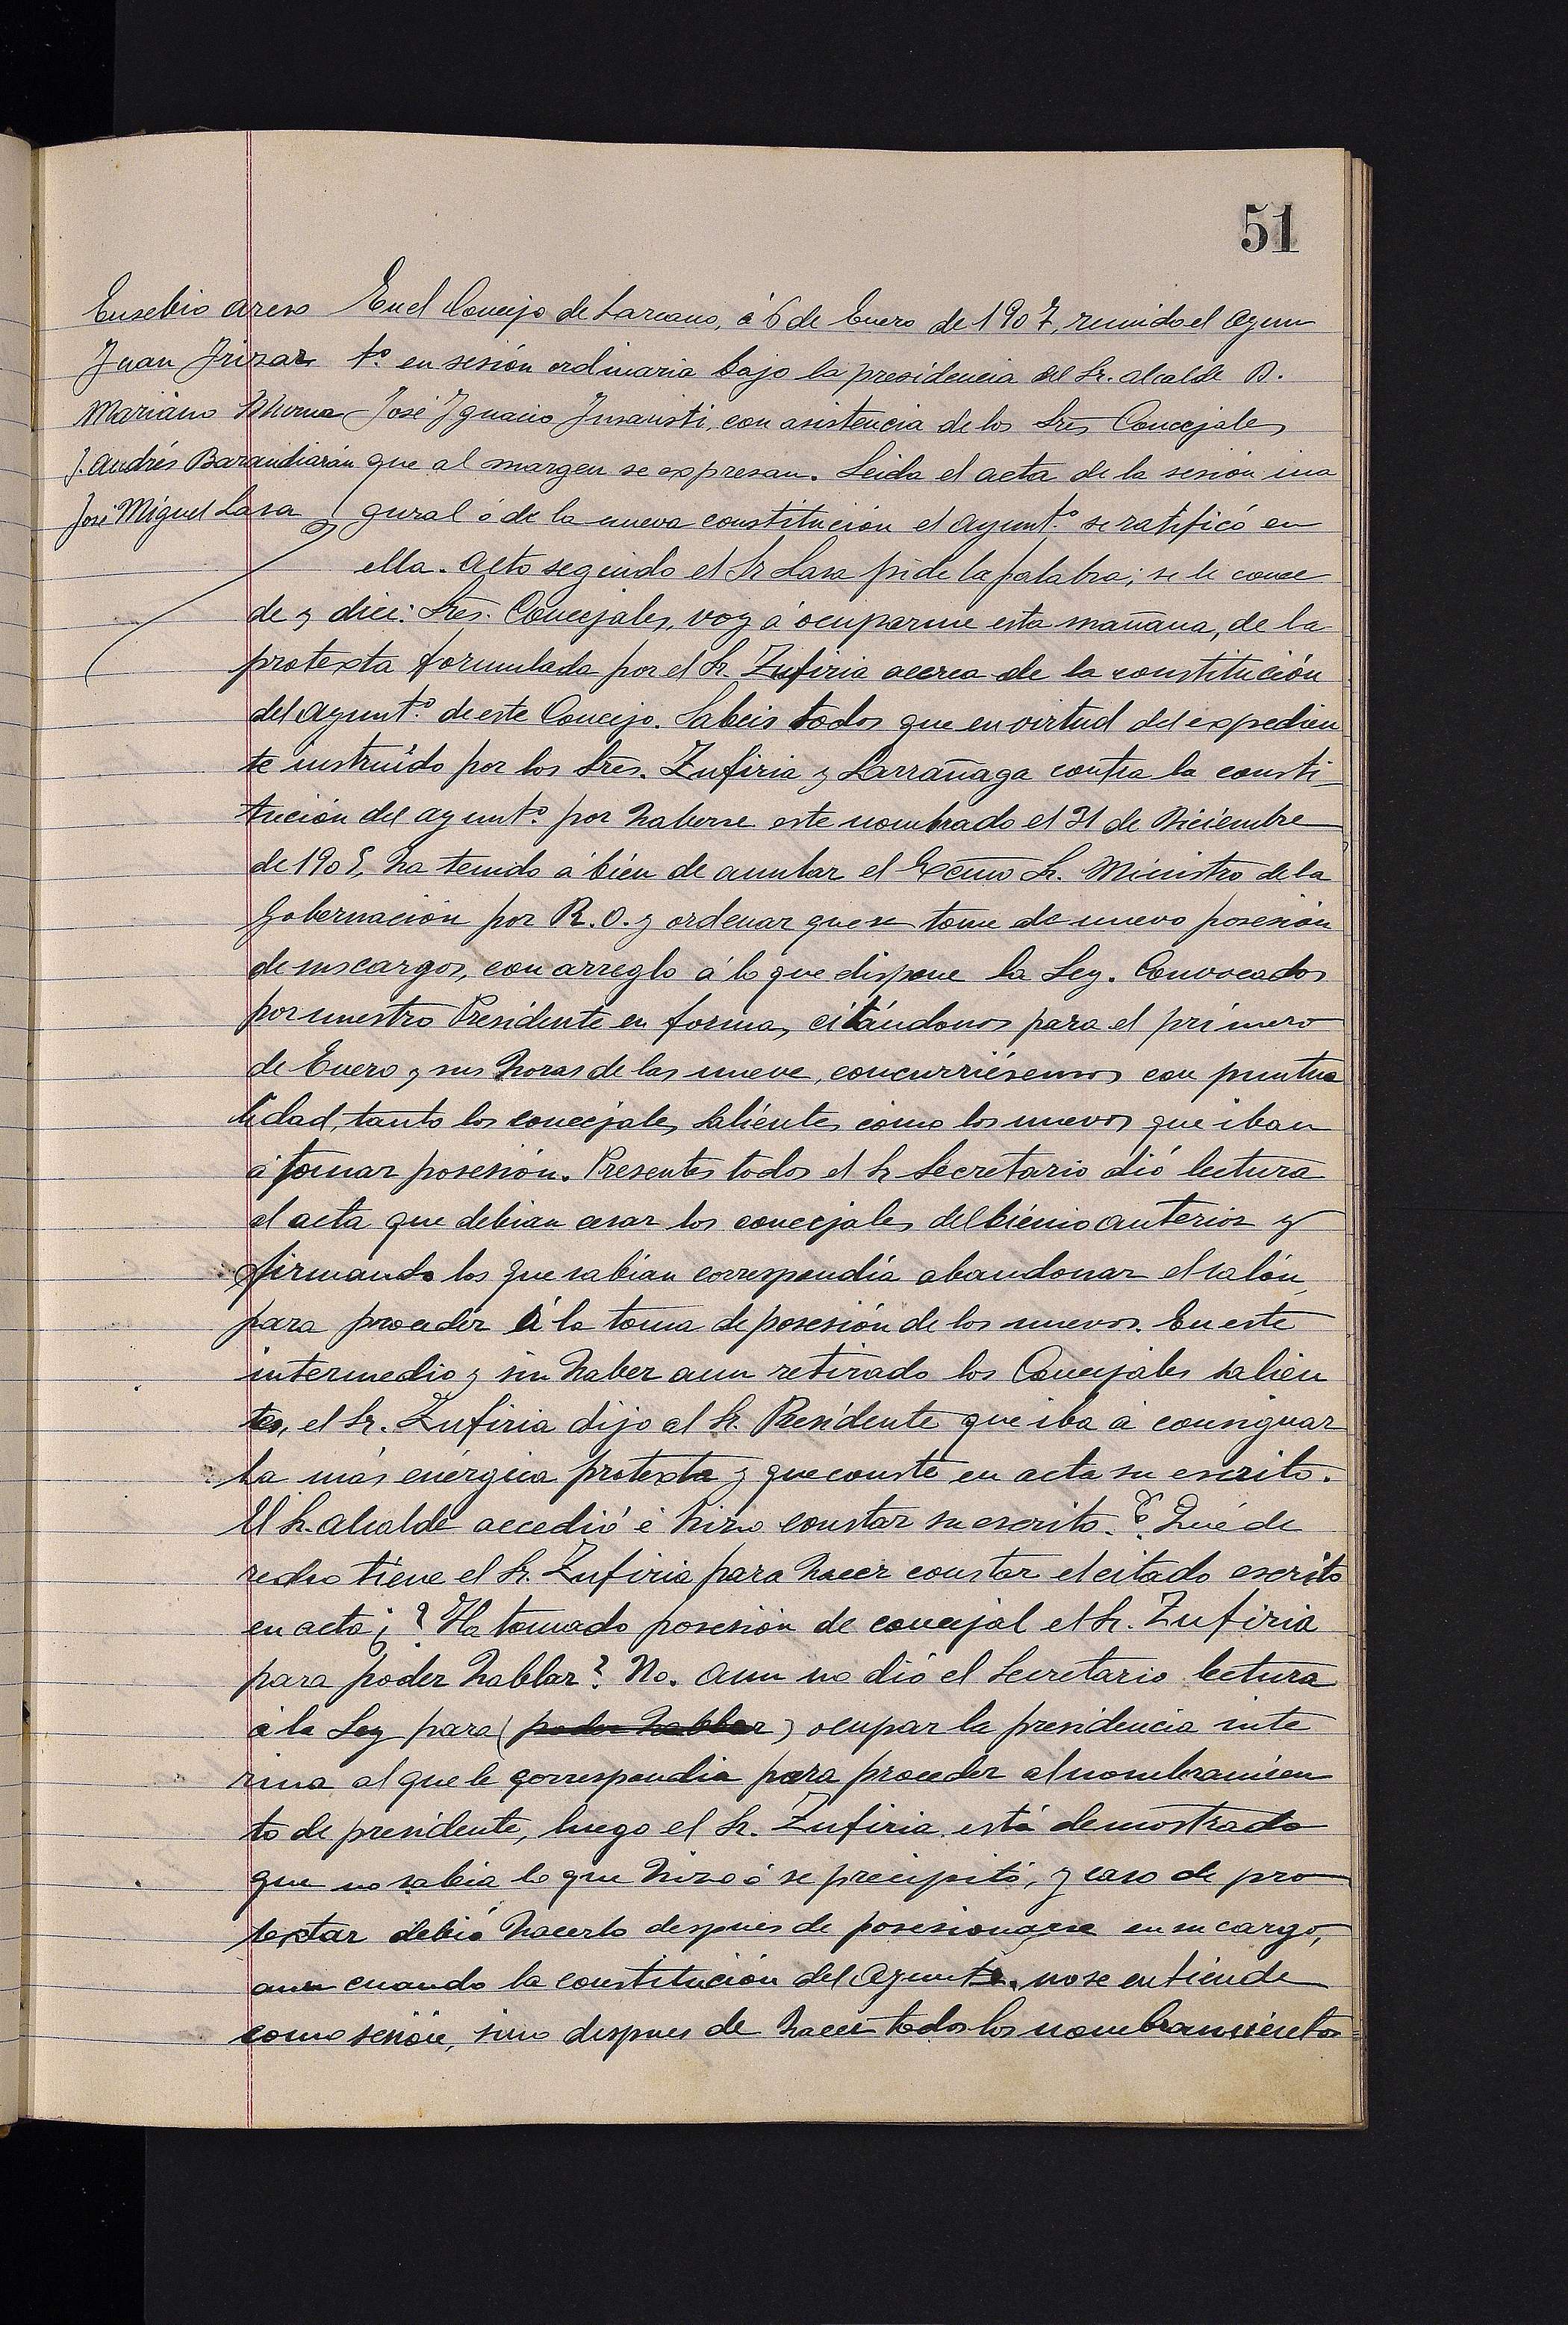 51
Eusebio Areso
Juan Irizar
Mariano
J. Andrés Barandiarán
José Miguel Lasa
En el Concejo de Lazcano, á 6 de Enero de 1907, reunido el Ayun
tº. en sesión ordinaria bajo la presidencia del Sr. Alcalde D.
José Ignacio Insausti, con asistencia de los Sres Concejales
que al margen se expresan. Leida el acta de la sesión ina
gural ó de la nueva constitución el Ayunt.º se ratificó en
ella. Acto seguido el Sr Lasa pide la palabra; se le conce
de y dice: Sres. Concejales, voy á ocuparme esta mañana, de la
protexta formulada por el Sr. Zufiria acerca de la constitución
del Ayunt.º de este Concejo. Sabeis todos que en virtud del expedien
te instruido por los Sres. Zufiria y Larrañaga contra la consti
tución del Ayunt.º por haberse este nombrado el 31 de Diciembre
de 1905, ha tenido á bién de anular el Excmo Sr. Ministro de la
Gobernación por R.O. y ordenar que se tome de nuevo posesión
de sus cargos, con arreglo á lo que dispone la Ley. Convocados
por nuestro Presidente en forma, citándonos para el primero
de Enero y sus horas de las nueve, concurriésemos con puntua
lidad, tanto los concejales salientes como los nuevos que iban
á tomar posesión. Presentes todos el Sr Secretario dió lectura
al acta que debian cesar los concejales del biénio anterior y
firmando los que sabian correspondía abandonar el salón,
para proceder á la toma de posesión de los nuevos. En este
intermedio y sin haber aun retirado los Concejales salien
tes, el Sr. Zufiria dijo al Sr. Presidente que iba á consignar
la más enérgica protexta y que conste en acta su escrito.
El Sr. Alcalde accedió é hizo constar su escrito. ¿Qué de
recho tiene el Sr. Zufiria para hacer constar el citado escrito
en acta¿? Ha tomado posesión de concejal el Sr. Zufiria
para poder hablar? No. Aun no dió el Secretario lectura
á la Ley para (poder hablar) ocupar la presidencia inte
rina al que le correspondia para proceder al nombramien
to de presidente, luego el Sr. Zufiria está demostrado
que no sabia lo que hizo ó se precipitó, y caso de pro
textar debió hacerlo despues de posesionarse en su cargo,
aun cuando la constitución del Ayuntº. no se entiende
como sesión, sino despues de hacer todos los nombramientos